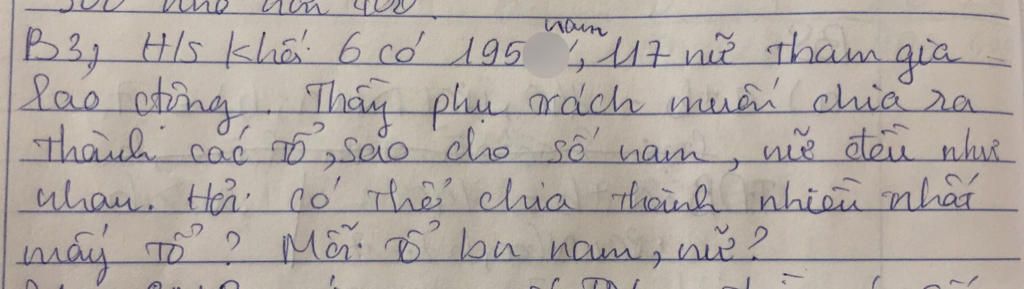 300 nhỏ hơn 400
nam
B3, H/s khối 6 có 195, 117 nữ tham gia
lao động. Thầy phụ trách muốn chia ra
thành các tổ, sao cho số nam, nữ đều như
nhau. Hỏi có thể chia thành nhiều nhất
mấy tổ? Mỗi tổ bn nam, nữ?